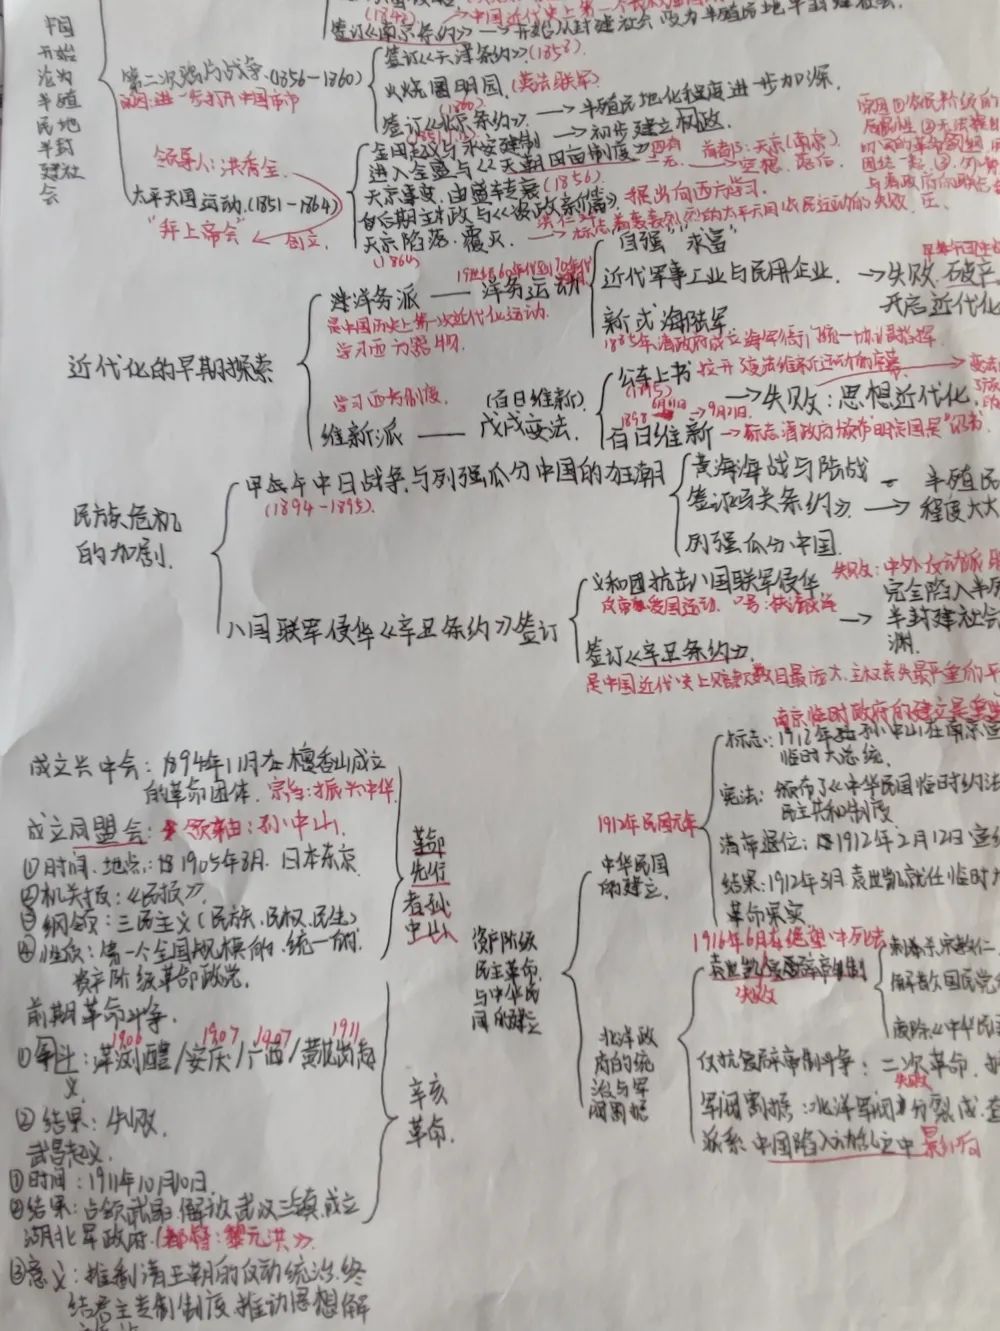 中国开始沦为半殖民地半封建社会
(1842)
签订《南京条约》→开始从封建社会变为半殖民地半封建社会.
第二次鸦片战争.(1856-1860)
原因:进一步打开中国市市
签订《天津条约》.(1858)
火烧圆明园.(英法联军)
(1860)
签订《北京条约》.→半殖民地化程度进一步加深.
领导人:洪秀全.
太平天国运动.(1851-1864)
"拜上帝会" ← 创立.
金田起义与永安建制→初步建立政权.
进入全盛与《天朝田亩制度》
天京事变.由盛转衰(1856)
后期主政与《资政新篇》.提出向西方学习.
天京陷落.覆灭.→标志着轰轰烈烈的太平天国农民运动的失败.
(1864)
近代化的早期探索
洋务派——洋务运动
19世纪60年代到70年代
是中国历史上第一次近代化运动.
学习西方器物.
自强 "求富"
近代军事工业与民用企业 →失败.破产
开启近代化
新式海陆军
1885年清政府成立海军衙门统一协调指挥.
学习西方制度.
维新派——戊戌变法.
(百日维新)
公车上书 拉开了变法维新运动的序幕
(1895)
→失败:思想近代化.
1898 6月11日→9月21日.
百日维新
民族危机的加剧.
甲午中日战争与列强瓜分中国的狂潮
(1894-1895).
黄海海战与陆战
签订《马关条约》. → 半殖民
程度大大
列强瓜分中国.
八国联军侵华《辛丑条约》签订
义和团抗击八国联军侵华
失败:中外反动派
反帝爱国运动. 口号:扶清灭洋
→完全陷入半殖
半封建社会
渊.
签订《辛丑条约》.
是中国近代史上赔款数目最庞大.主权丧失最严重的
成立兴中会:1894年11月在檀香山成立
的革命团体.宗旨:振兴中华.
成立同盟会:领袖:孙中山.
①时间.地点:1905年8月.日本东京.
②机关报:《民报》.
③纲领:三民主义(民族.民权.民生)
④性质:第一个全国规模的.统一的.
资产阶级革命政党.
革命先行者孙中山
前期革命斗争.
1906 1907 1907 1911
①斗:萍浏醴/安庆/广西/黄花岗起
义.
②结果:失败.
武昌起义.
①时间:1911年10月10日.
②结果:占领武昌.解放武汉三镇.成立
湖北军政府.(都督:黎元洪).
③意义:推翻清王朝的反动统治.终
结君主专制制度.推动思想解
辛亥革命.
资产阶级民主革命与中华民国的建立
1912年民国元年
中华民国的建立.
南京临时政府的建立是
标志:1912年孙中山在南京
临时大总统.
宪法:颁布了《中华民国临时约法
民主共和制度
清帝退位:1912年2月12日宣
结果:1912年3月袁世凯就任临时大
革命果实
北洋政府的统治与军阀割据
1916年6月在绝望中死去
袁世凯复辟帝制
失败
解散国民党
废除《中华民
反抗复辟帝制斗争:二次革命.
失败
军阀割据:北洋军阀分裂成.
派系.中国陷入动乱之中